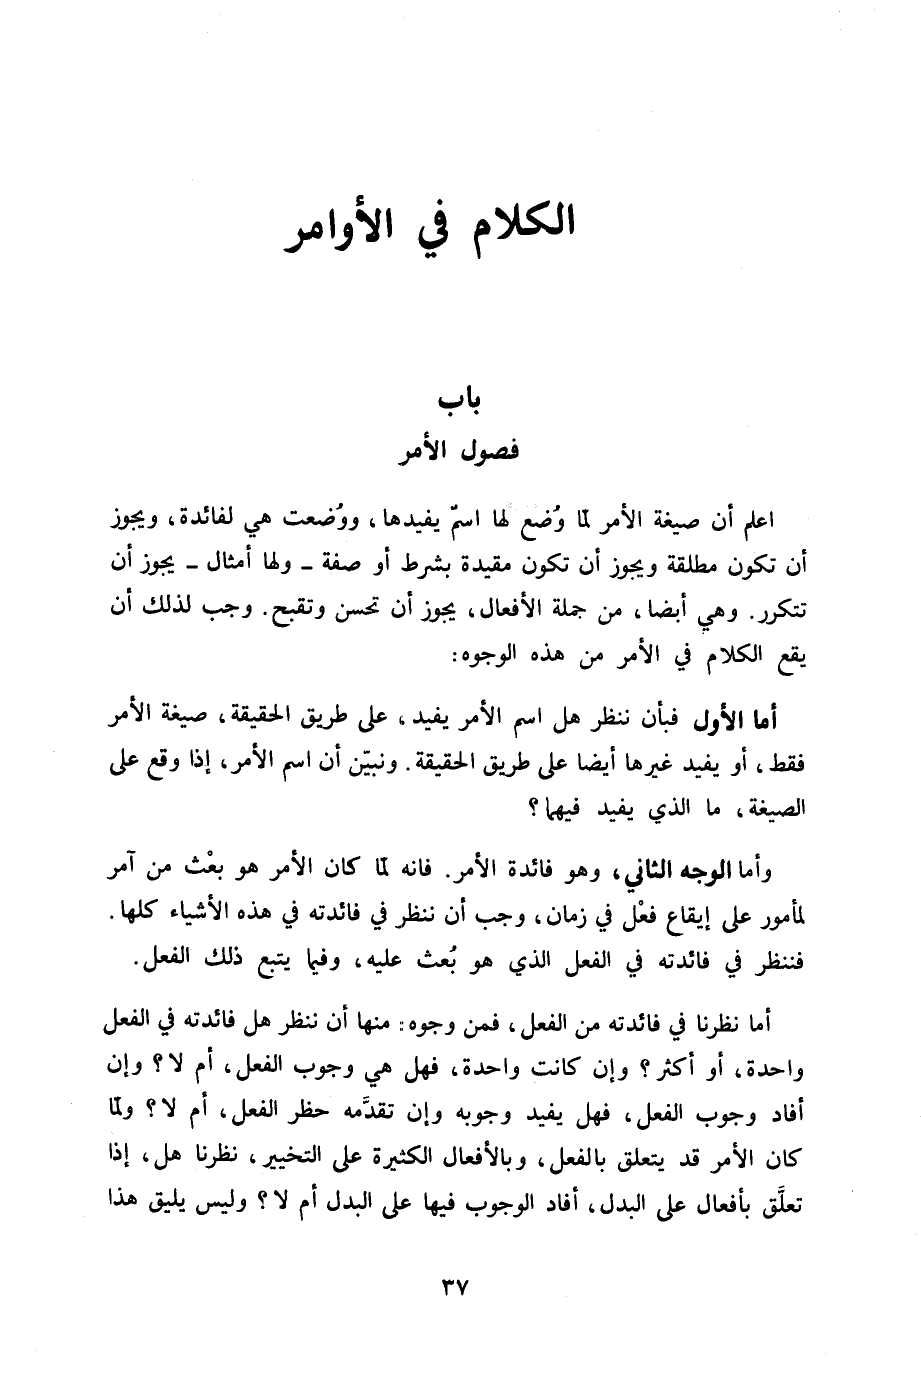 الكلام في الأوامر
باب
فصول الأمر
اعلم أن صيغة الأمر لما وُضع لها اسمٌ يفيدها، ووُضعت هي لفائدة، ويجوز
أن تكون مطلقة ويجوز أن تكون مقيدة بشرط أو صفة - ولها أمثال - يجوز أن
تتكرر. وهي أيضا، من جملة الأفعال، يجوز أن تحسن وتقبح. وجب لذلك أن
يقع الكلام في الأمر من هذه الوجوه:
أما الأول فبأن ننظر هل اسم الأمر يفيد، على طريق الحقيقة، صيغة الأمر
فقط، أو يفيد غيرها أيضا على طريق الحقيقة. ونبيّن أن اسم الأمر، إذا وقع على
الصيغة، ما الذي يفيد فيها؟
وأما الوجه الثاني، وهو فائدة الأمر. فانه لما كان الأمر هو بعْث من آمر
لمأمور على إيقاع فعْل في زمان، وجب أن ننظر في فائدته في هذه الأشياء كلها.
فننظر في فائدته في الفعل الذي هو بُعث عليه، وفيما يتبع ذلك الفعل.
أما نظرنا في فائدته من الفعل، فمن وجوه: منها أن ننظر هل فائدته في الفعل
واحدة، أو أكثر؟ وإن كانت واحدة، فهل هي وجوب الفعل، أم لا؟ وإن
أفاد وجوب الفعل، فهل يفيد وجوبه وإن تقدَّمه حظر الفعل، أم لا؟ ولما
كان الأمر قد يتعلق بالفعل، وبالأفعال الكثيرة على التخيير، نظرنا هل، إذا
تعلَّق بأفعال على البدل، أفاد الوجوب فيها على البدل أم لا؟ وليس يليق هذا
٣٧